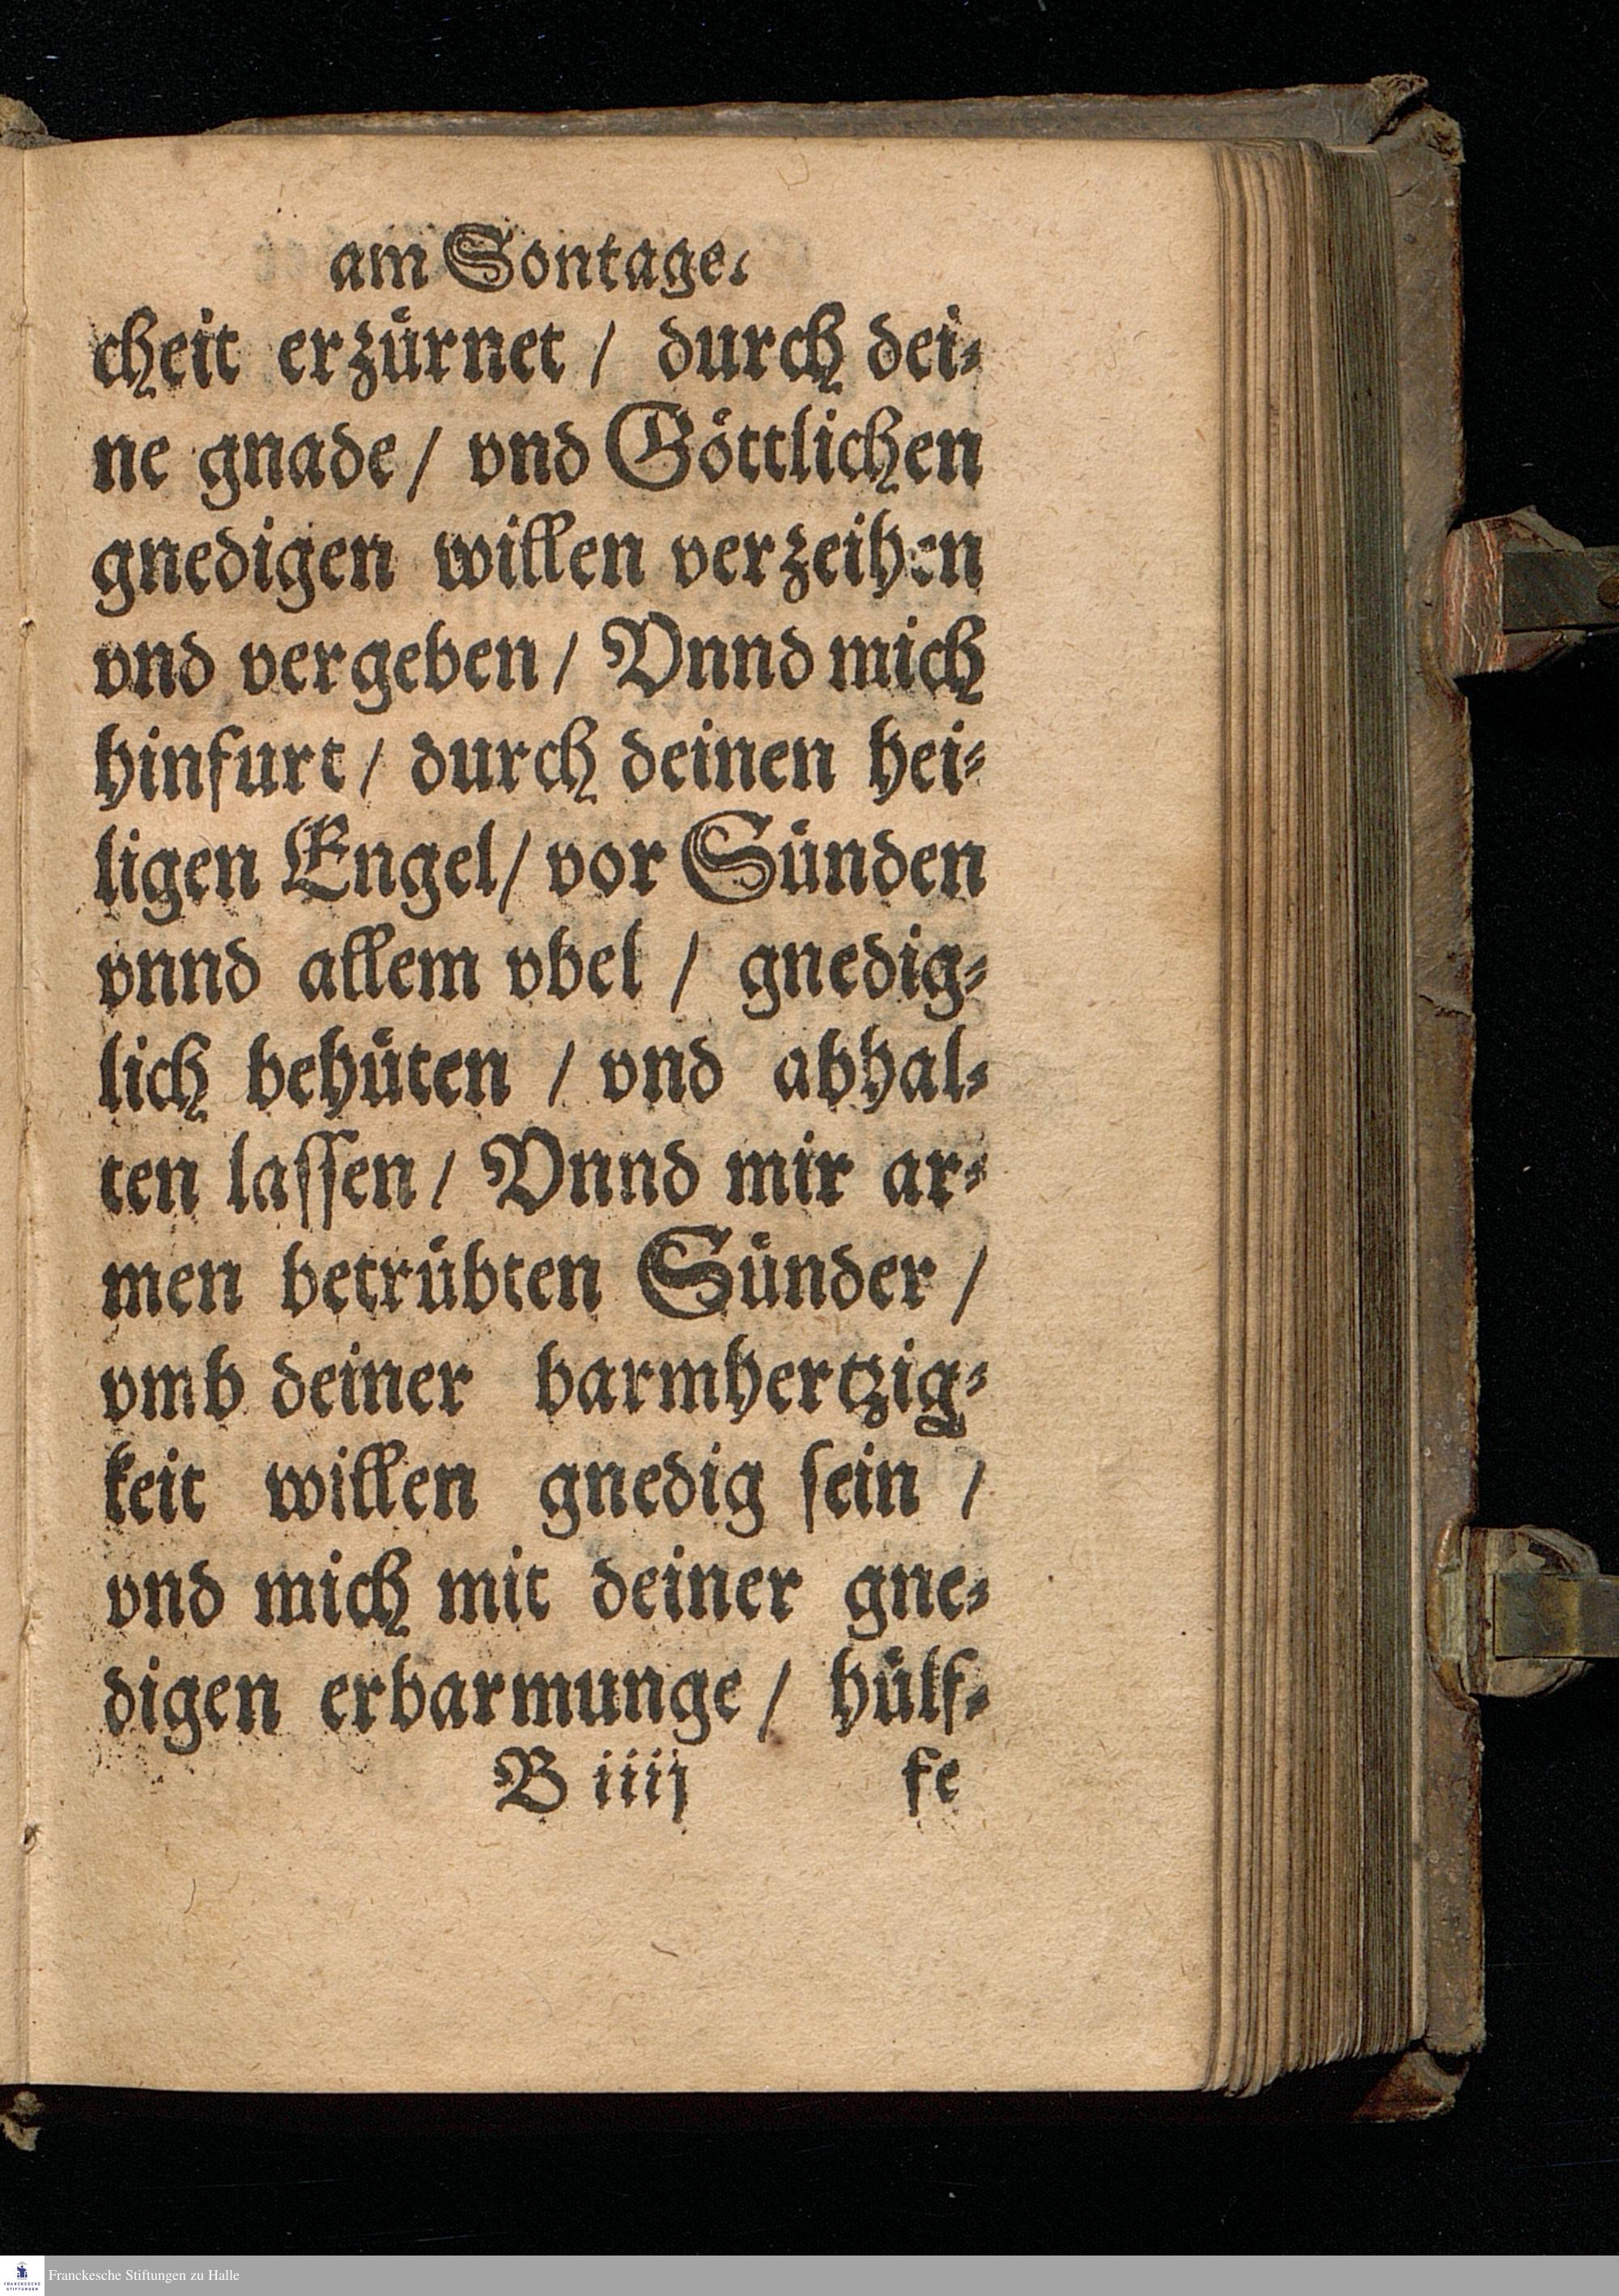 am Sontage.
cheit erzürnet / durch dei-
ne gnade / vnd Göttlichen
gnedigen willen verzeihen
vnd vergeben / Vnnd mich
hinfurt / durch deinen hei-
ligen Engel / vor Sünden
vnnd allem vbel / gnedig-
lich behüten / vnd abhal-
ten lassen / Vnnd mir ar-
men betrübten Sünder /
vmb deiner barmhertzig-
keit willen gnedig sein /
vnd mich mit deiner gne-
digen erbarmunge / hülf-
B iiij fe
Franckesche Stiftungen zu Halle
FRANCKESCHE
STIFTUNGEN